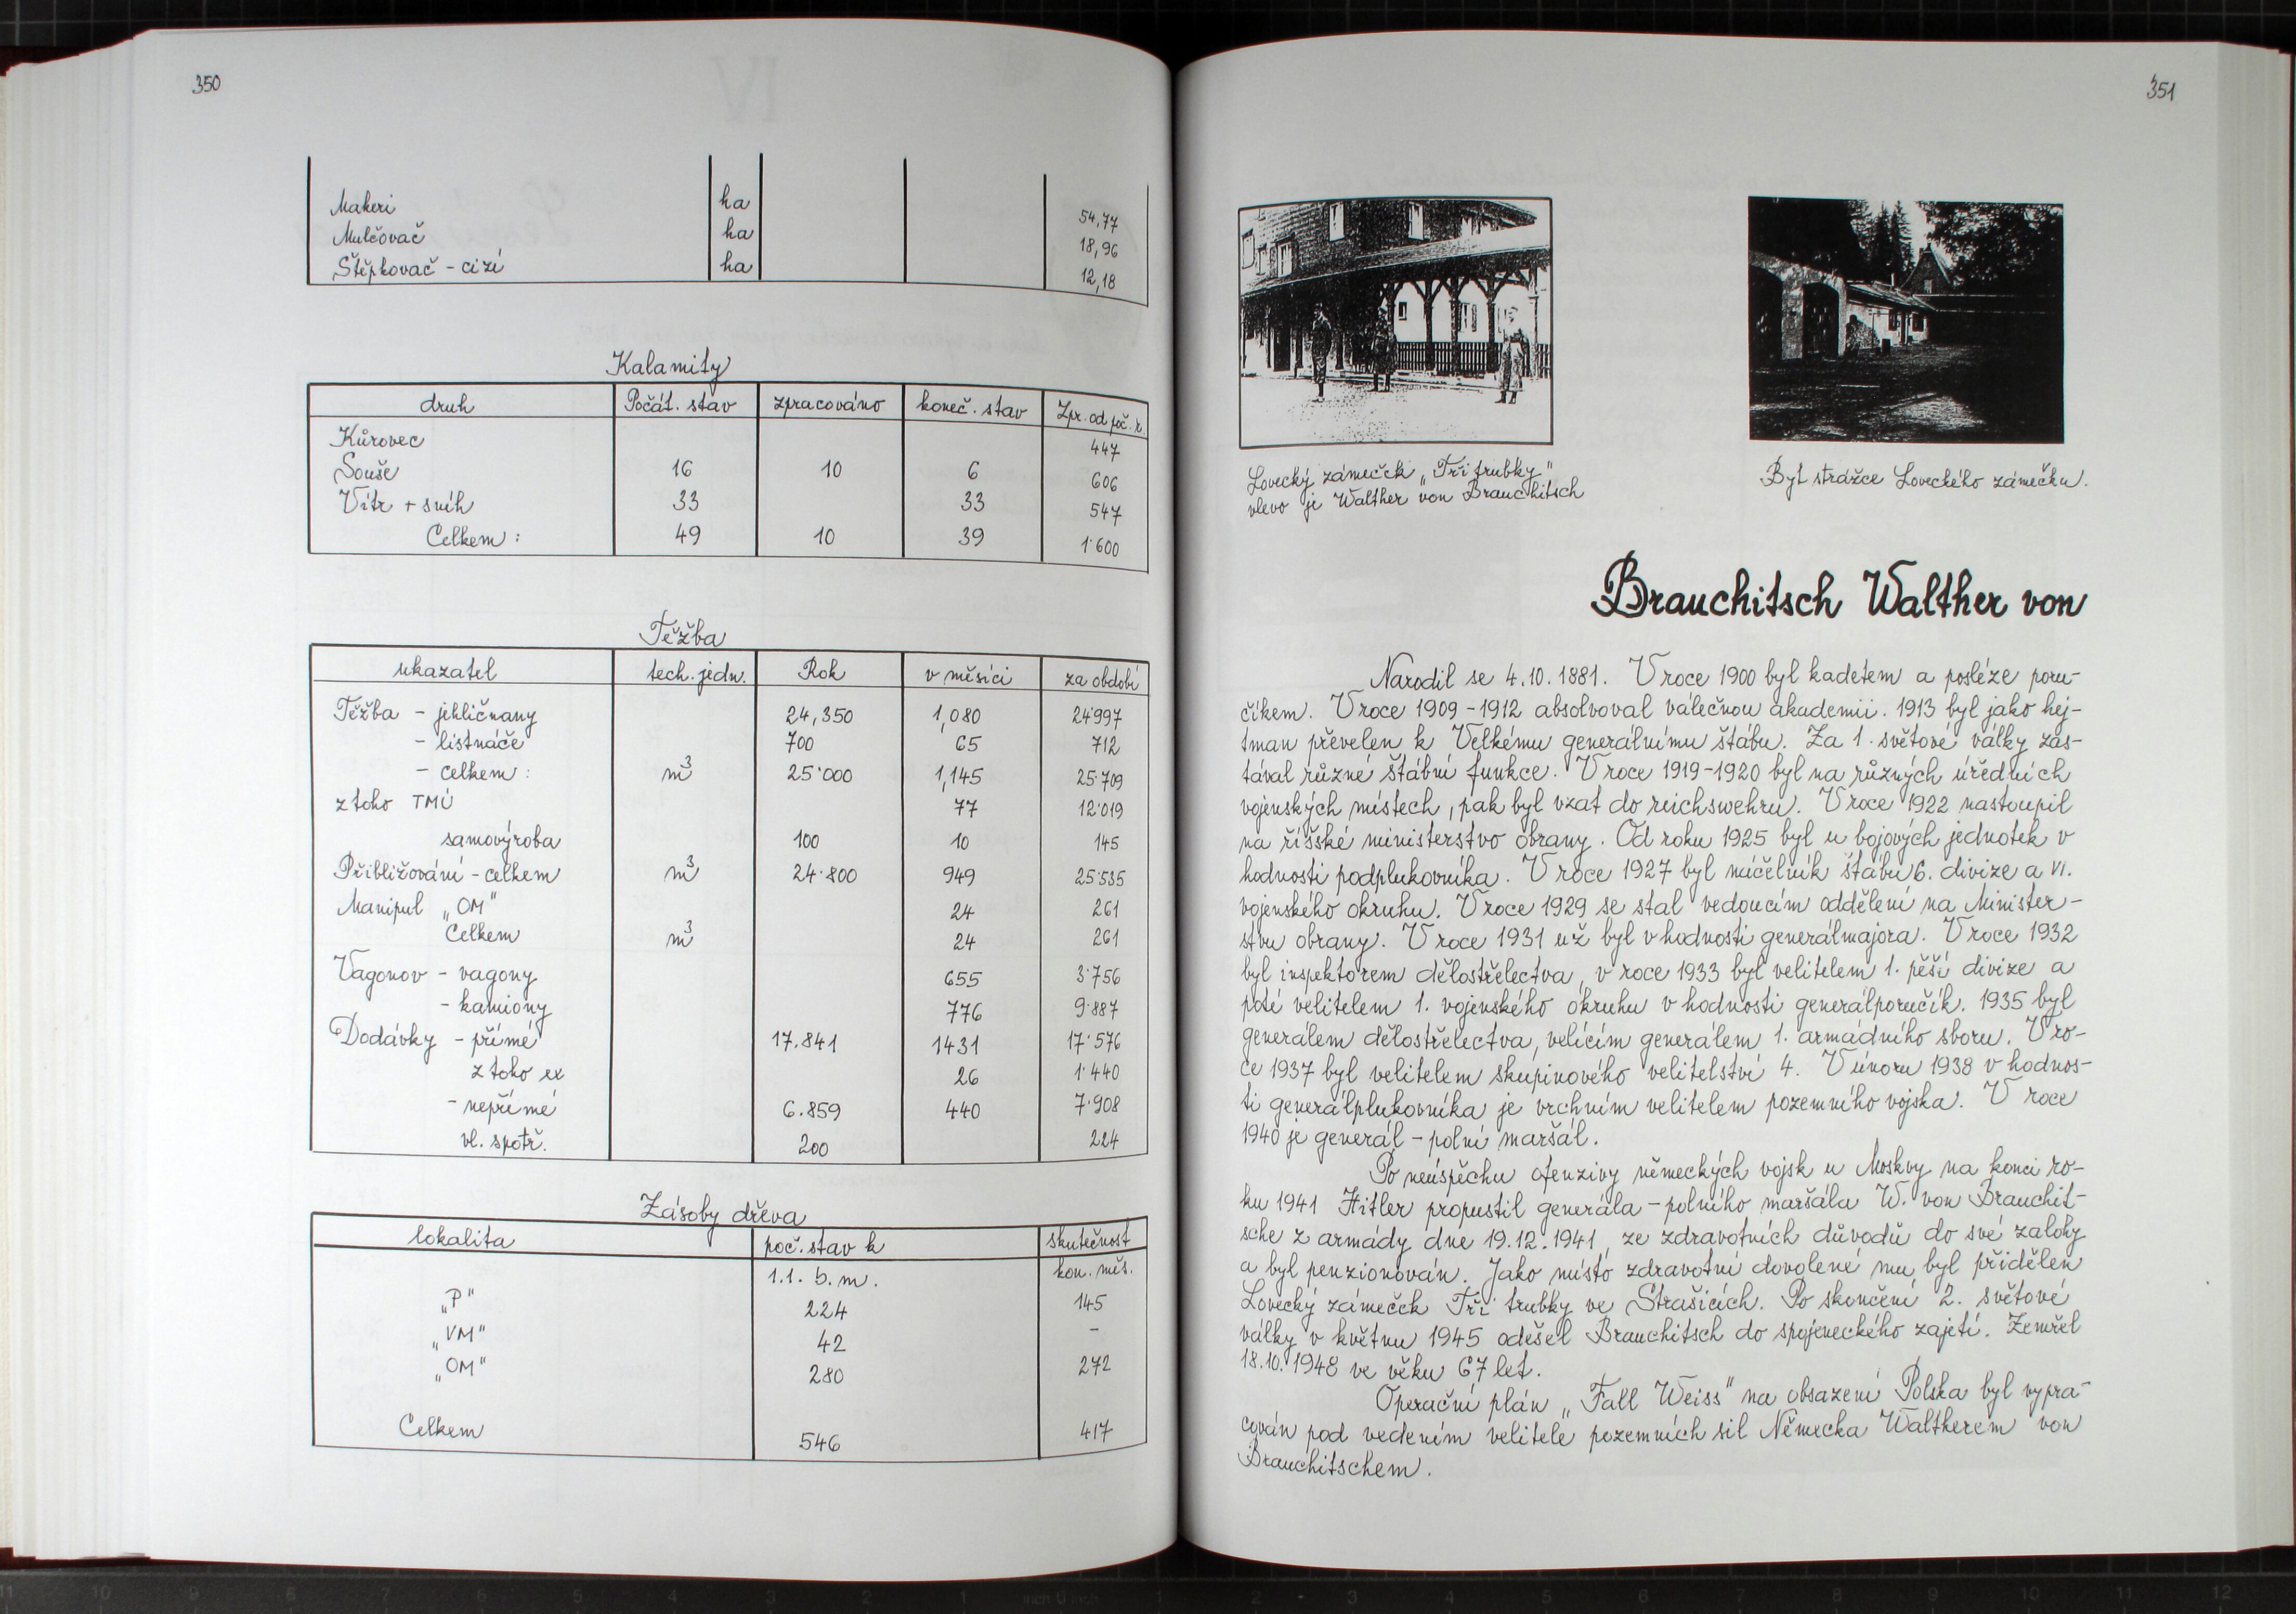 350
Makeri ha 54,77
Mulčovač ha 18,96
Štěpkovač - cizí ha 12,18
Kalamity
druh Počát. stav zpracováno koneč. stav Zpr. od poč. r.
Kůrovec 447
Souše 16 10 6 606
Vítr + sníh 33 33 547
Celkem : 49 10 39 1˙600
Těžba
ukazatel tech. jedn. Rok v měsíci za období
Těžba - jehličnany 24,350 1,080 24˙997
- listnáče 700 65 712
- celkem : m³ 25˙000 1,145 25˙709
z toho TMÚ 77 12˙019
samovýroba 100 10 145
Přibližování - celkem m³ 24˙800 949 25˙535
Manipul „OM" 24 261
Celkem m³ 24 261
Vagonov - vagony 655 3˙756
- kamiony 776 9˙887
Dodávky - přímé 17.841 1431 17˙576
z toho ex 26 1˙440
- nepřímé 6.859 440 7˙908
vl. spotř. 200 224
Zásoby dřeva
lokalita poč. stav k skutečnost
1.1. b.m. kon. měs.
„P" 224 145
„VM" 42 -
„OM" 280 272
Celkem 546 417
351
Lovecký zámeček „Tři trubky"
vlevo je Walther von Brauchitsch
Byt strážce Loveckého zámečku.
Brauchitsch Walther von
Narodil se 4.10.1881. V roce 1900 byl kadetem a posléze poru-
číkem. V roce 1909 - 1912 absolvoval válečnou akademii. 1913 byl jako hej-
tman převelen k Velkému generálnímu štábu. Za 1. světové války zas-
tával různé štábní funkce. V roce 1919-1920 byl na různých úředních
vojenských místech, pak byl vzat do reichswehru. V roce 1922 nastoupil
na říšské ministerstvo obrany. Od roku 1925 byl u bojových jednotek v
hodnosti podplukovníka. V roce 1927 byl náčelník štábu 6. divize a VI.
vojenského okruhu. V roce 1929 se stal vedoucím oddělení na Minister-
stvu obrany. V roce 1931 už byl v hodnosti generálmajora. V roce 1932
byl inspektorem dělostřelectva, v roce 1933 byl velitelem 1. pěší divize a
poté velitelem 1. vojenského okruhu v hodnosti generálporučík. 1935 byl
generálem dělostřelectva, velícím generálem 1. armádního sboru. V ro-
ce 1937 byl velitelem skupinového velitelství 4. V únoru 1938 v hodnos-
ti generálplukovníka je vrchním velitelem pozemního vojska. V roce
1940 je generál - polní maršál.
Po neúspěchu ofenzivy německých vojsk u Moskvy na konci ro-
ku 1941 Hitler propustil generála - polního maršála W. von Brauchit-
sche z armády dne 19.12.1941, ze zdravotních důvodů do své zálohy
a byl penzionován. Jako místo zdravotní dovolené mu byl přidělen
Lovecký zámeček Tři trubky ve Strašicích. Po skončení 2. světové
války v květnu 1945 odešel Brauchitsch do spojeneckého zajetí. Zemřel
18.10.1948 ve věku 67 let.
Operační plán „Fall Weiss" na obsazení Polska byl vypra-
cován pod vedením velitele pozemních sil Německa Waltherem von
Brauchitschem.